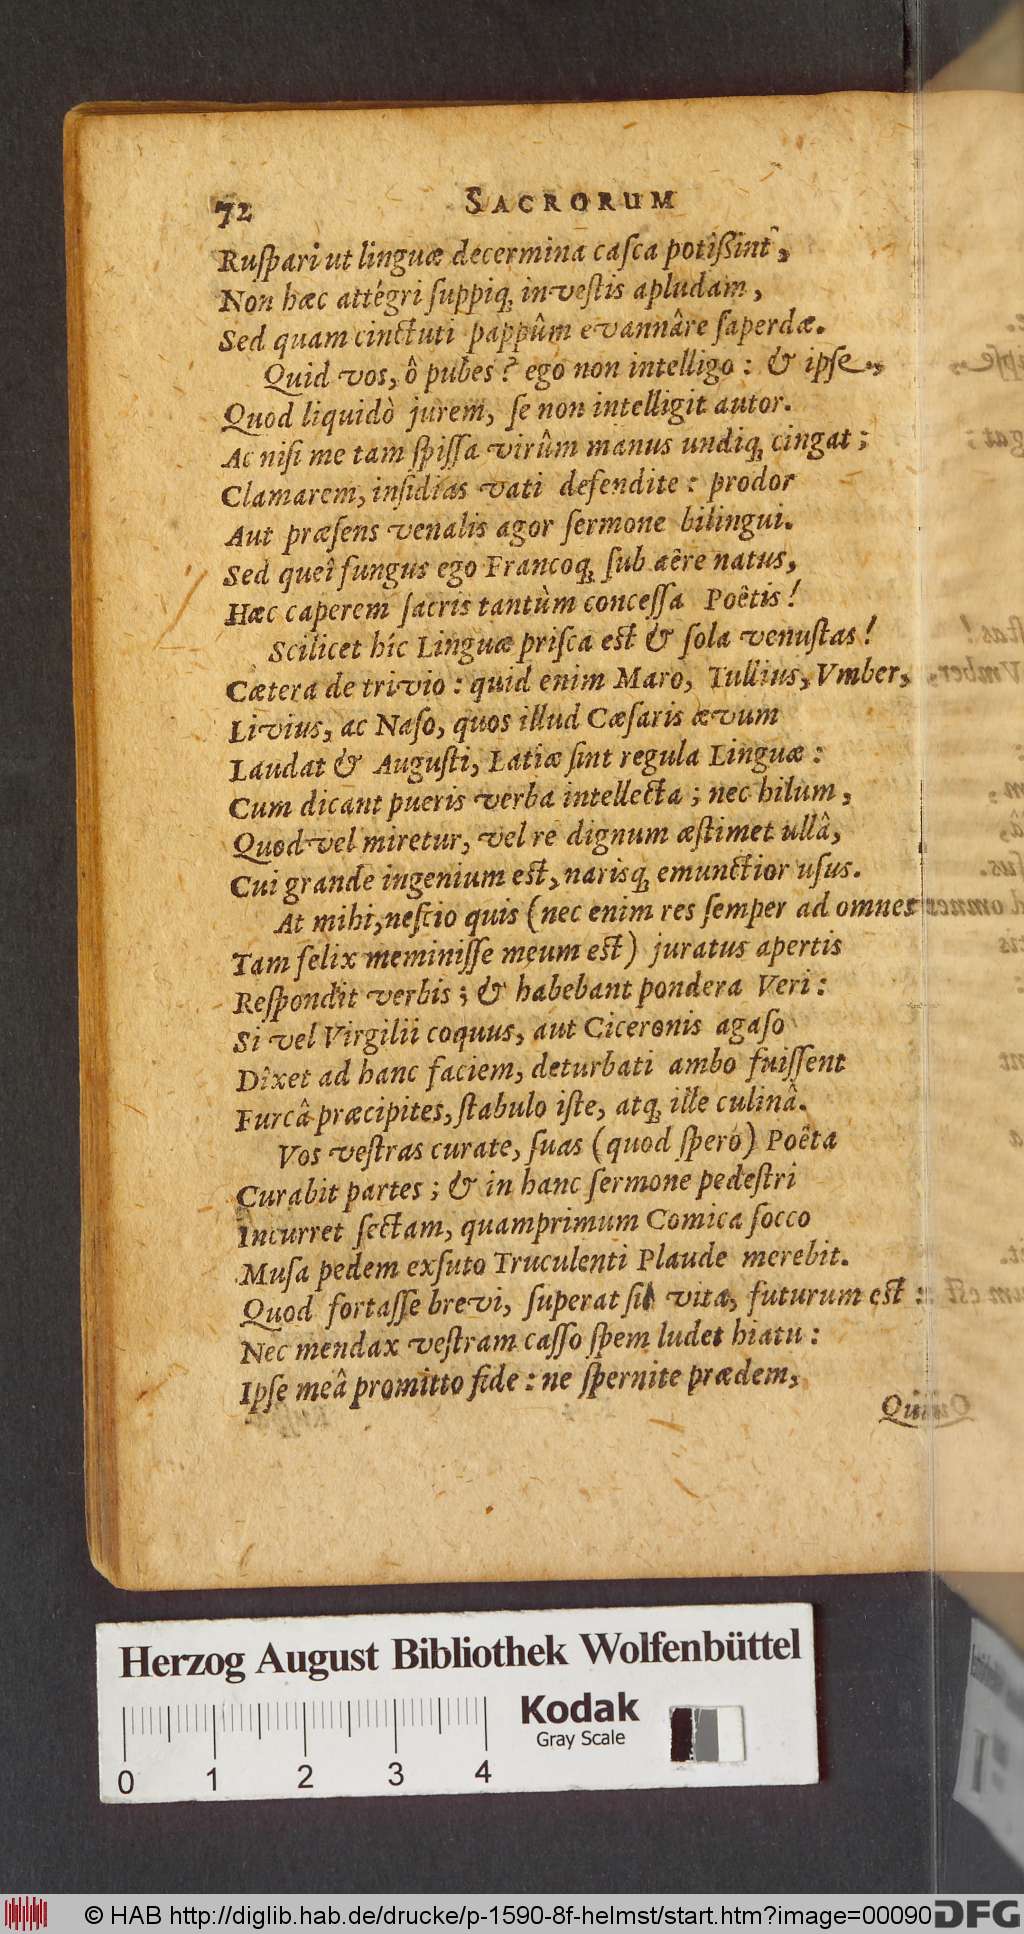 72 SACRORUM
Ruſpari ut linguæ decermina caſca potißint,
Non hæc attégri ſuppiq; inveſtis apludam,
Sed quam cinctuti pappûm evannâre ſaperdæ.
Quid vos, ô pubes? ego non intelligo: & ipſe,
Quod liquidò jurem, ſe non intelligit autor.
Ac niſi me tam ſpiſſa virûm manus undiq; cingat;
Clamarem, inſidias vati defendite: prodor
Aut præſens venalis agor ſermone bilingui.
Sed queî fungus ego Francoq; ſub aêre natus,
Hæc caperem ſacris tantùm conceſſa Poêtis!
Scilicet híc Linguæ priſca eſt & ſola venuſtas!
Cætera de trivio: quid enim Maro, Tullius, Vmber,
Livius, ac Naſo, quos illud Cæſaris ævum
Laudat & Auguſti, Latiæ ſint regula Linguæ:
Cum dicant pueris verba intellecta; nec hilum,
Quod vel miretur, vel re dignum æſtimet ullâ,
Cui grande ingenium eſt, narisq; emunctior uſus.
At mihi, neſcio quis (nec enim res ſemper ad omnes
Tam felix meminiſſe meum eſt) juratus apertis
Reſpondit verbis; & habebant pondera Veri:
Si vel Virgilii coquus, aut Ciceronis agaſo
Dîxet ad hanc faciem, deturbati ambo fuiſſent
Furcâ præcipites, ſtabulo iſte, atq; ille culinâ.
Vos veſtras curate, ſuas (quod ſpero) Poêta
Curabit partes; & in hanc ſermone pedeſtri
Incurret ſectam, quamprimum Comica ſocco
Muſa pedem exſuto Truculenti Plaude merebit.
Quod fortaſſe brevi, ſuperat ſi vita, futurum eſt:
Nec mendax veſtram caſſo ſpem ludet hiatu:
Ipſe meâ promitto fide: ne ſpernite prædem,
Herzog August Bibliothek Wolfenbüttel
Kodak
Gray Scale
0 1 2 3 4
© HAB http://diglib.hab.de/drucke/p-1590-8f-helmst/start.htm?image=00090
DFG